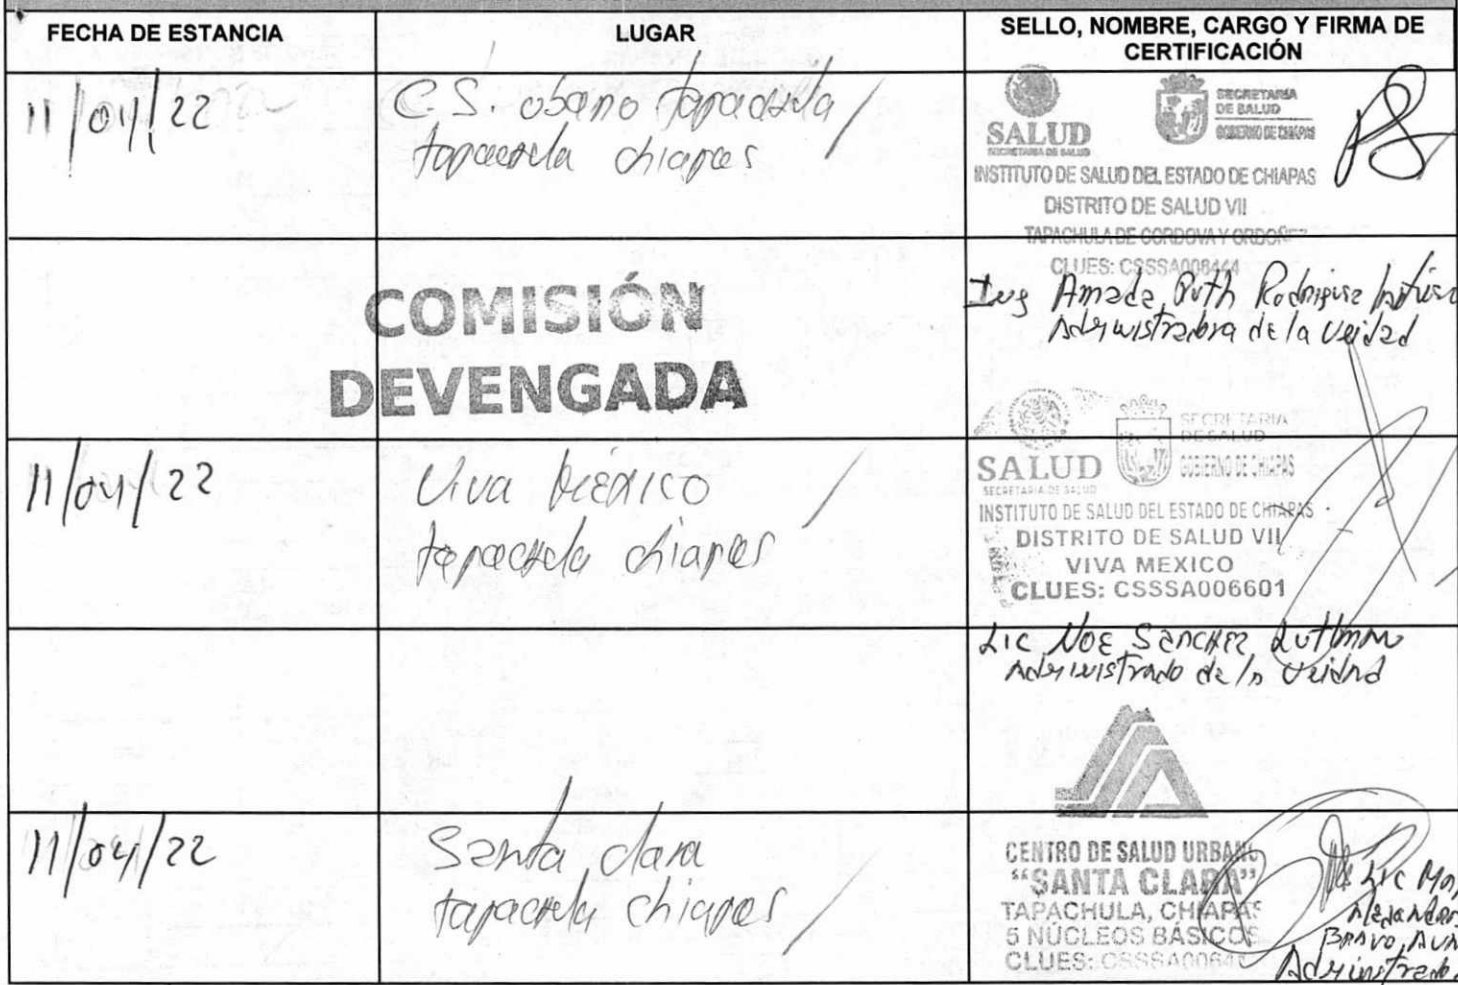 FECHA DE ESTANCIA
LUGAR
SELLO, NOMBRE, CARGO Y FIRMA DE
CERTIFICACIÓN
11/04/22
C.S. urbano tapachula /
tapachula chiapas
SALUD
SECRETARIA DE SALUD
SECRETARIA
DE SALUD
GOBIERNO DE CHIAPAS
INSTITUTO DE SALUD DEL ESTADO DE CHIAPAS
DISTRITO DE SALUD VII
TAPACHULA DE CORDOVA Y ORDOÑEZ
CLUES: CSSSA008444
COMISIÓN
DEVENGADA
Amada Ruth Rodriguez
Administradora de la Unidad
11/04/22
Viva México /
tapachula chiapas
SALUD
SECRETARIA DE SALUD
SECRETARIA
DE SALUD
GOBIERNO DE CHIAPAS
INSTITUTO DE SALUD DEL ESTADO DE CHIAPAS
DISTRITO DE SALUD VII
VIVA MEXICO
CLUES: CSSSA006601
Lic Noe Sanchez
Administrado de la Unidad
11/04/22
Santa clara
tapachula chiapas /
CENTRO DE SALUD URBANO
"SANTA CLARA"
TAPACHULA, CHIAPAS
5 NÚCLEOS BÁSICOS
CLUES:
Lic
Bravo